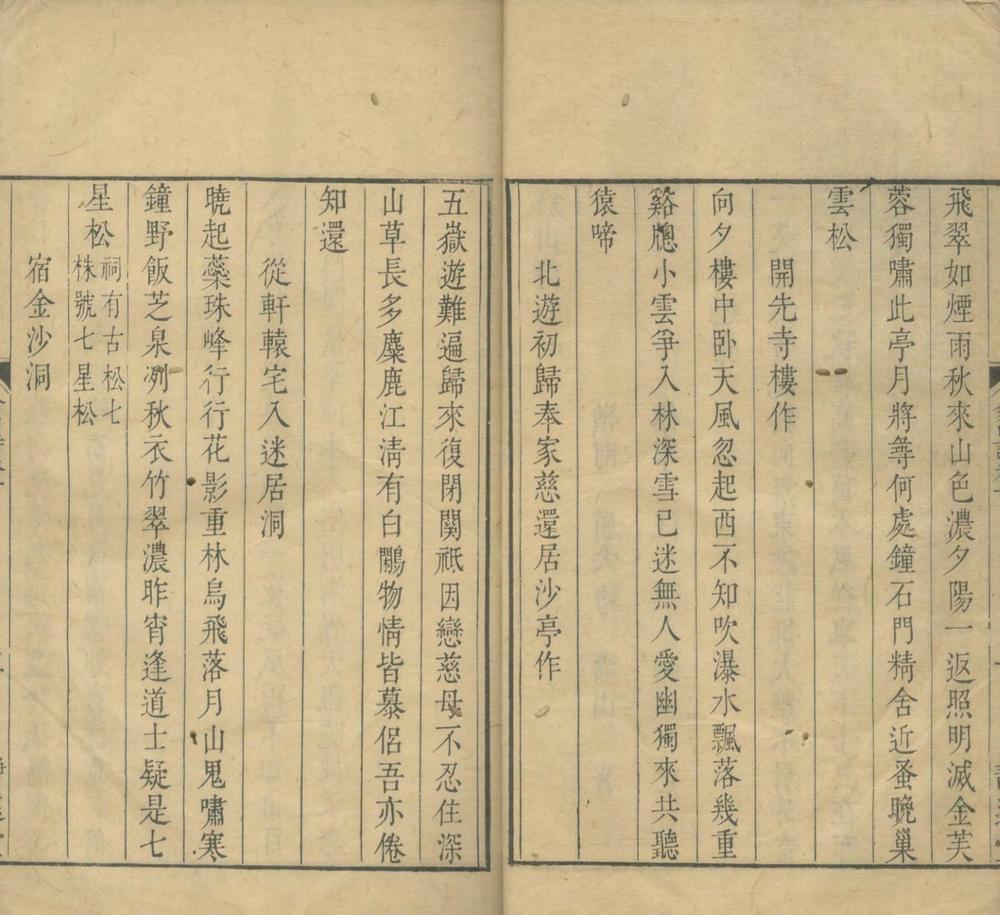 飛翠如煙雨秋來山色濃夕陽一返照明滅金芙
蓉獨嘯此亭月將尋何處鐘石門精舍近蚤晚巢
雲松
開先寺樓作
向夕樓中卧天風忽起西不知吹瀑水飄落幾重
谿牕小雲爭入林深雪已迷無人愛幽獨來共聽
猿啼
北遊初歸奉家慈還居沙亭作
五嶽遊難遍歸來復閉關祗因戀慈母不忍住深
山草長多麋鹿江清有白鷴物情皆慕侶吾亦倦
知還
從軒轅宅入迷居洞
曉起蘂珠峰行行花影重林烏飛落月山鬼嘯寒
鐘野飯芝泉冽秋衣竹翠濃昨宵逢道士疑是七
星松祠有古松七株號七星松
宿金沙洞